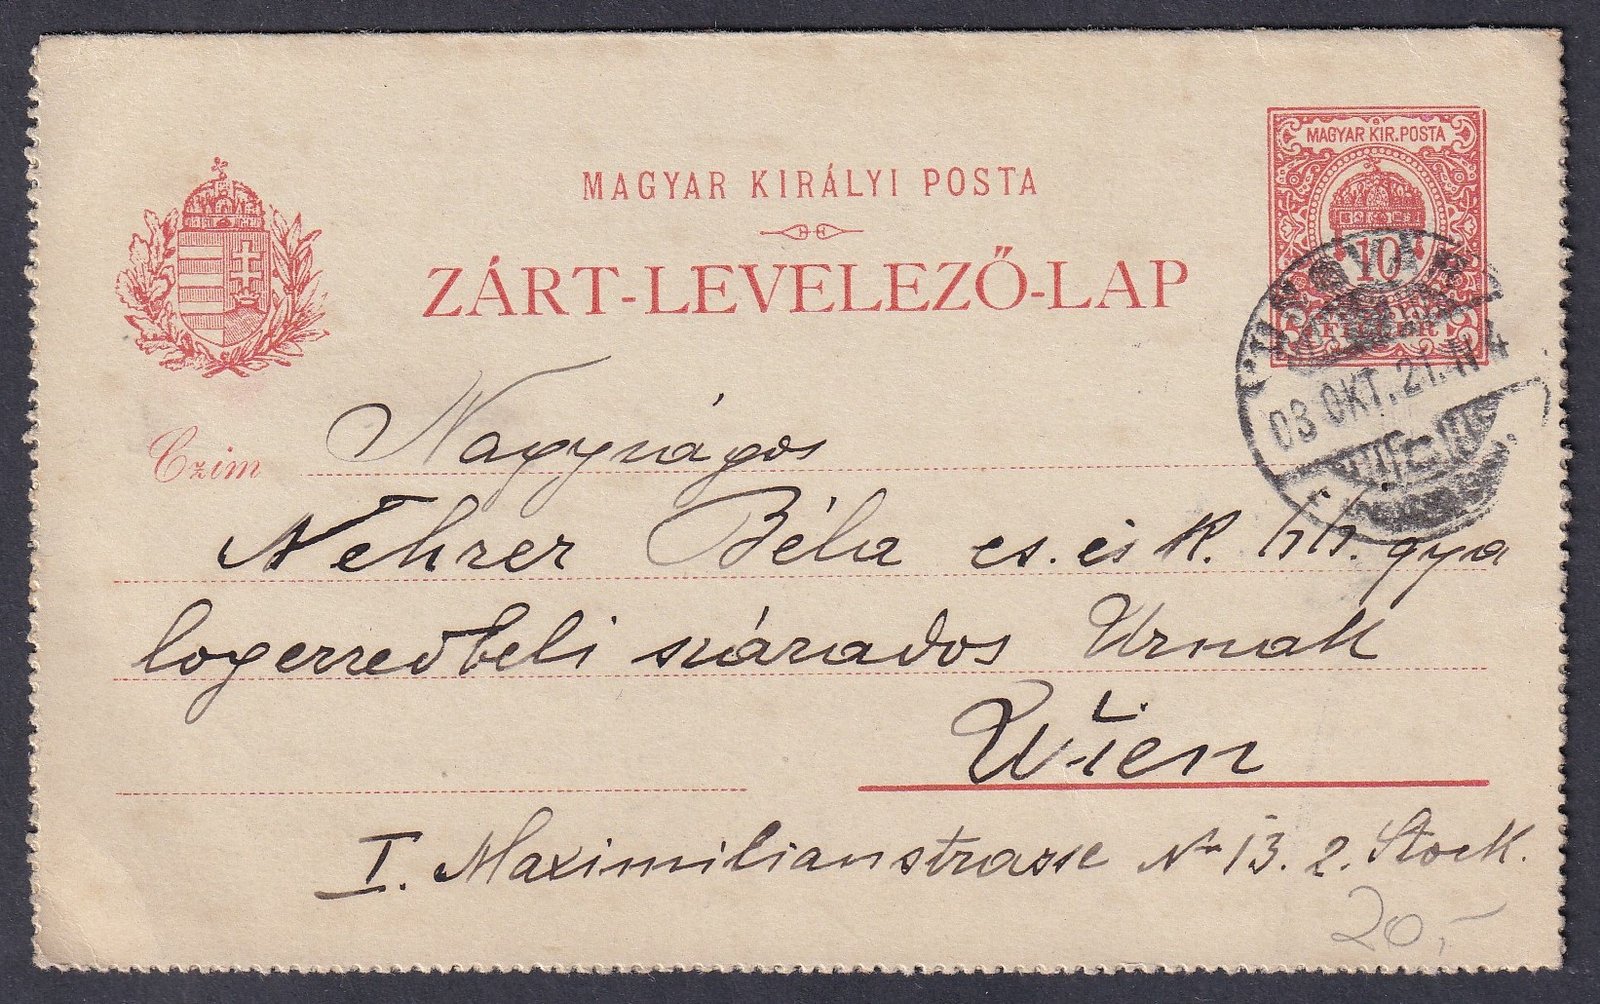 MAGYAR KIRÁLYI POSTA
ZÁRT-LEVELEZŐ-LAP
MAGYAR KIR. POSTA
10
FILLÉR
03 OKT. 21. N 4
Czim
Nagyságos
Nehrer Béla cs. és k. hh. gya
logezredbeli százados Urnak
Wien
I. Maximilianstrasse Nr 13. 2. Stock.
20,-